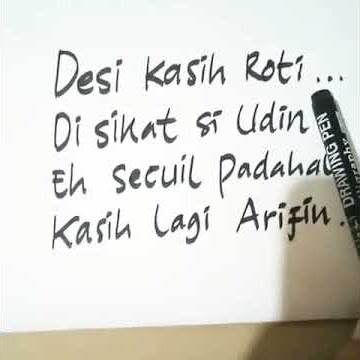 Desi Kasih Roti ...
Di sikat si Udin
Eh secuil padaha
Kasih Lagi Arifin.
DRAWING PEN